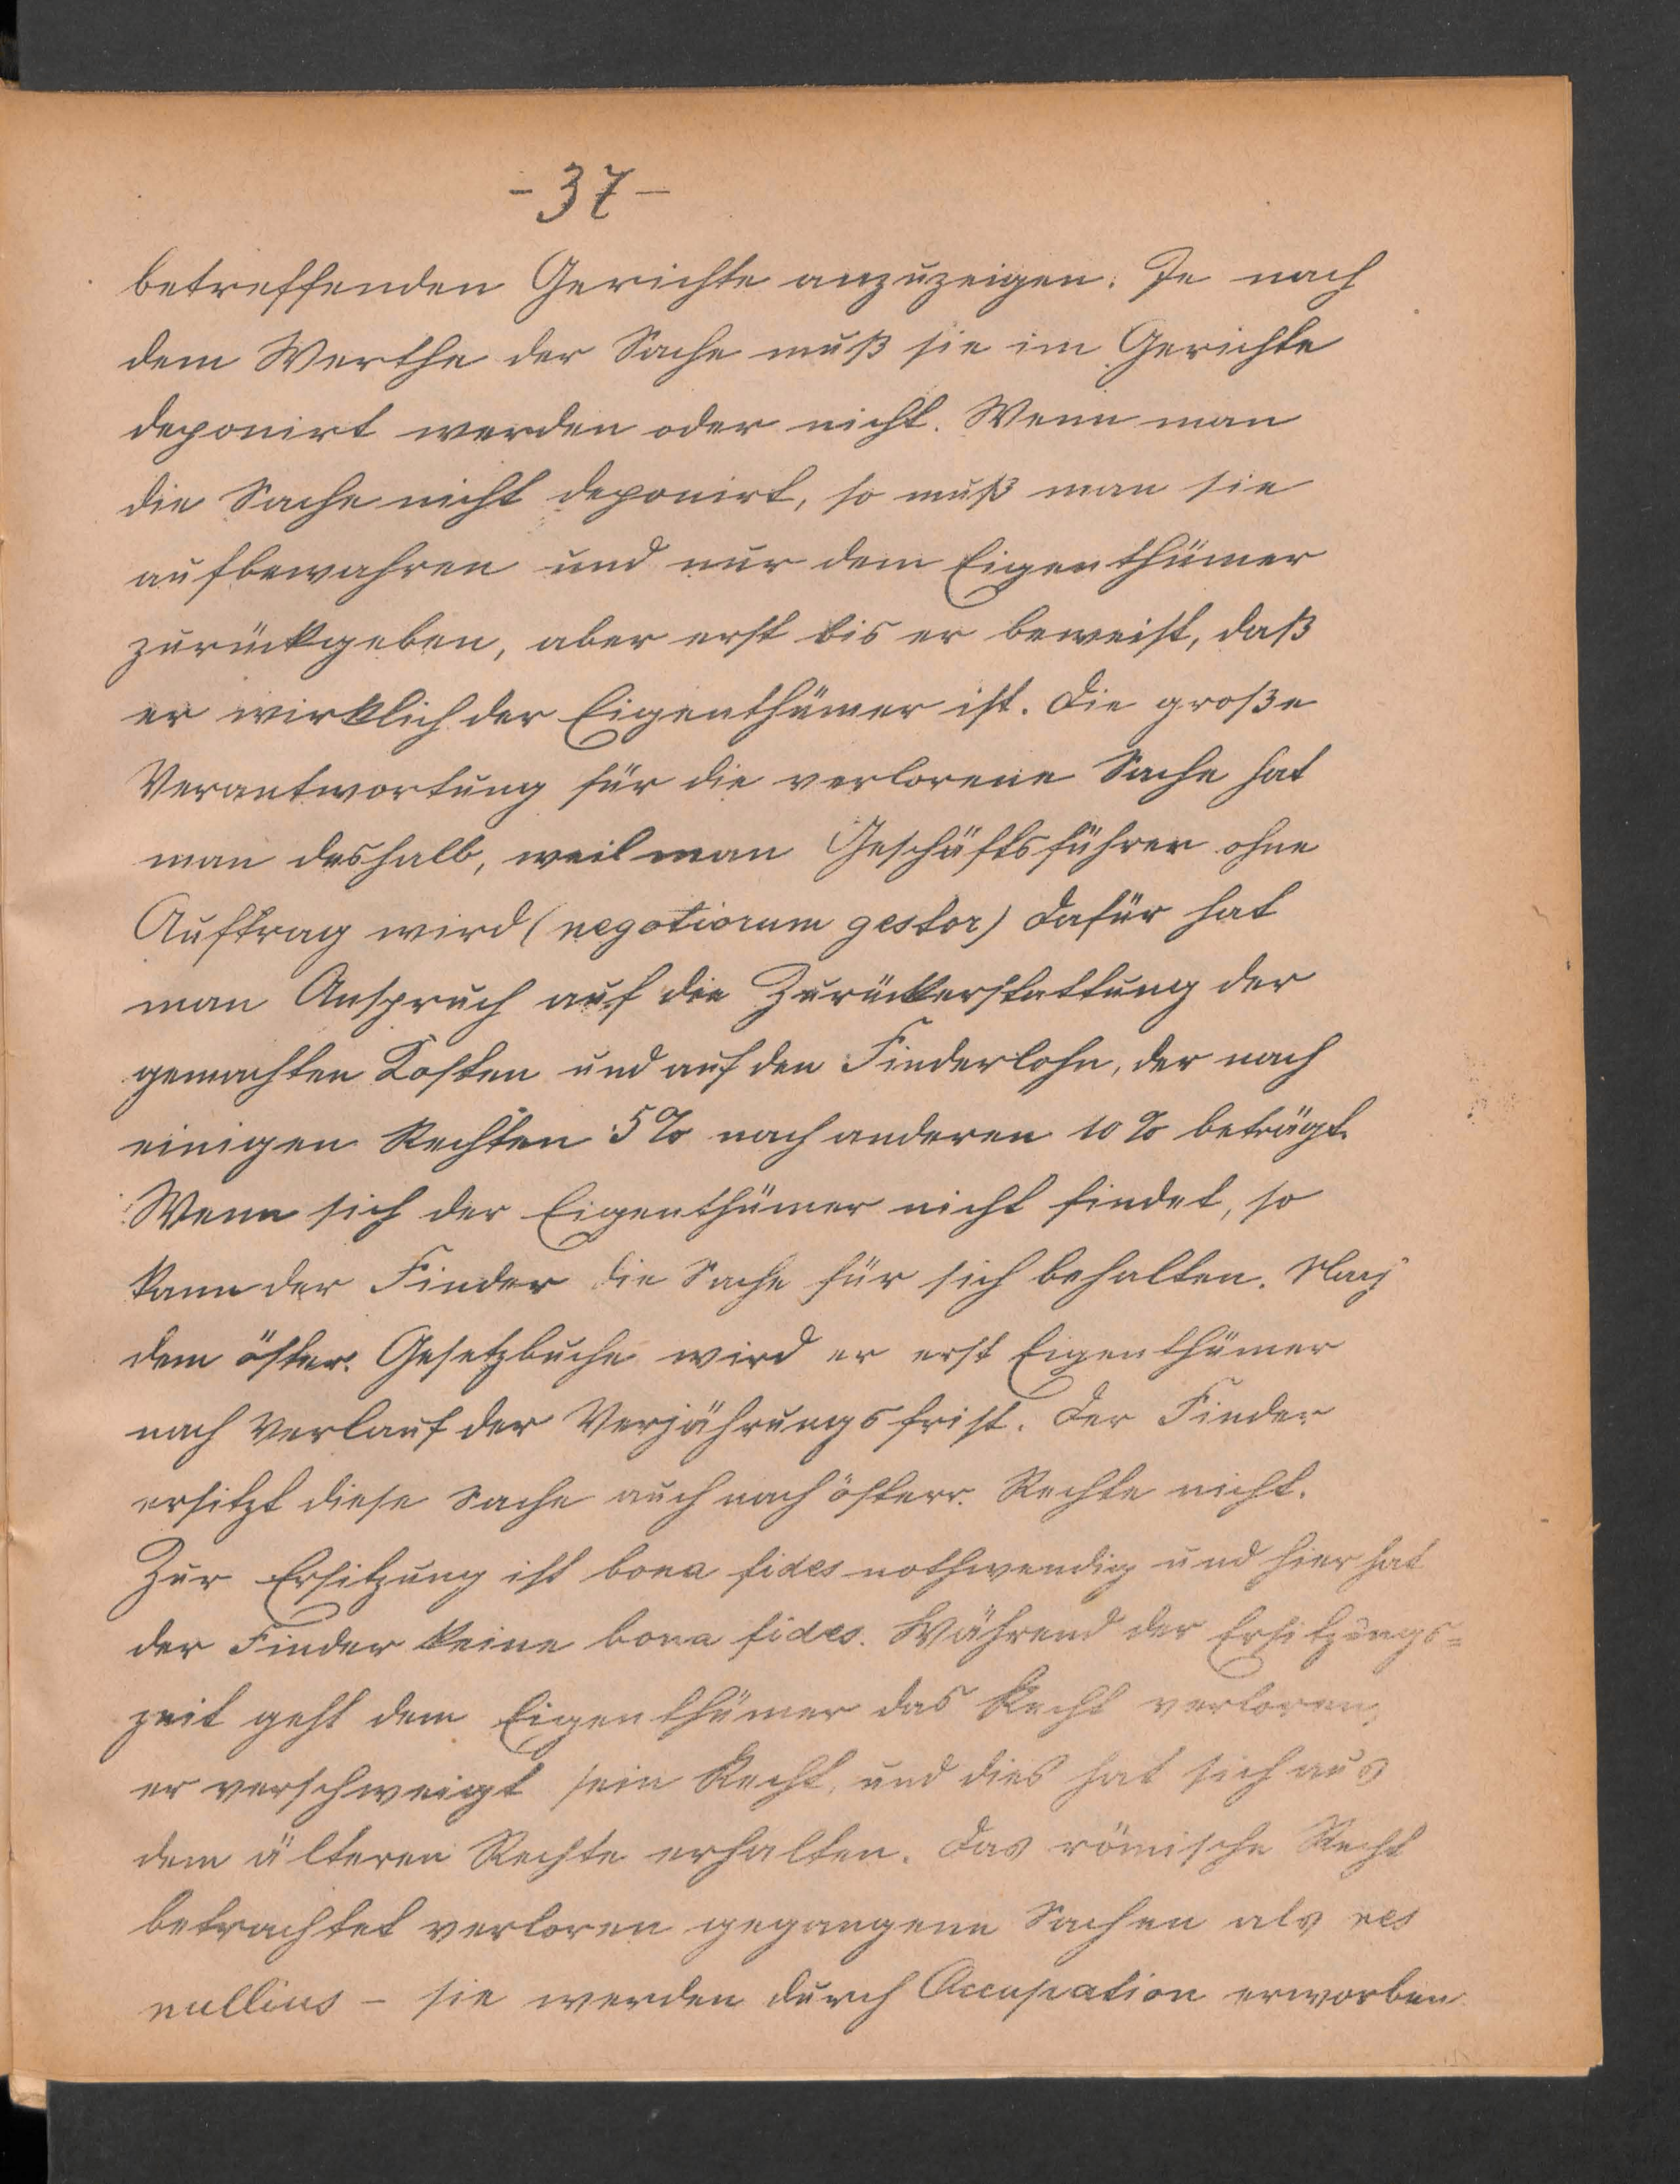 - 37 -
betreffenden Gerichte anzuzeigen. Je nach
dem Werthe der Sache muß sie im Gerichte
deponirt werden oder nicht. Wenn man
die Sache nicht deponirt, so muß man sie
aufbewahren und nur dem Eigenthümer
zurückgeben, aber erst bis er beweist, daß
er wirklich der Eigenthümer ist. Die große
Verantwortung für die verlorene Sache hat
man deshalb, weil man Geschäftsführer ohne
Auftrag wird (negotiorum gestor) dafür hat
man Anspruch auf die Zurückerstattung der
gemachten Kosten und auf den Finderlohn, der nach
einigen Rechten 5% nach anderen 10% beträgt.
Wenn sich der Eigenthümer nicht findet, so
kann der Finder die Sache für sich behalten. Nach
dem öster. Gesetzbuche wird er erst Eigenthümer
nach Verlauf der Verjährungsfrist. Der Finder
ersitzt diese Sache auch nach österr. Rechte nicht.
Zur Ersitzung ist bona fides nothwendig und hier hat
der Finder keine bona fides. Während der Ersitzungs=
zeit geht dem Eigenthümer das Recht verloren,
er verschweigt sein Recht, und dies hat sich aus
dem älteren Rechte erhalten. Das römische Recht
betrachtet verloren gegangene Sachen als res
nullius - sie werden durch Occupation erworben